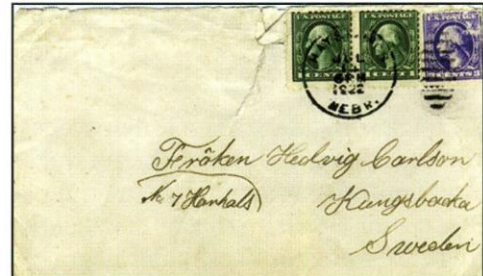 U.S. POSTAGE U.S. POSTAGE U.S. POSTAGE
1 CENT 1 1 CENT 1 CENTS 3
6 PM
1922
NEBR.
Fröken Hedvig Carlson
No 7 Hanhals Kungsbacka
Sweden